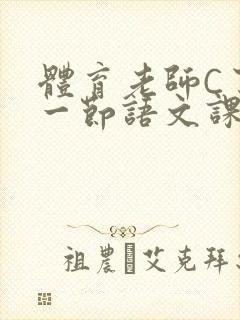 體育老師C
一節語文課
祖農 艾克拜